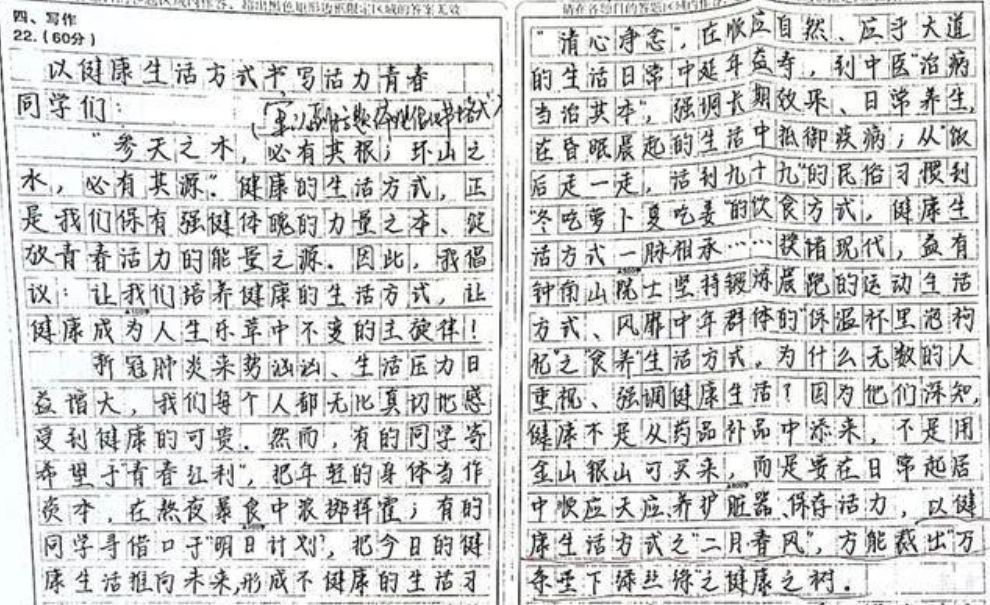 四、写作
22.(60分)
以健康生活方式书写活力青春
同学们：
"参天之木，必有其根；环山之
水，必有其源"。健康的生活方式，正
是我们保有强健体魄的力量之本、绽
放青春活力的能量之源。因此，我倡
议：让我们培养健康的生活方式，让
健康成为人生乐章中不变的主旋律！
新冠肺炎来势汹汹、生活压力日
益增大，我们每个人都无比真切地感
受到健康的可贵。然而，有的同学寄
希望于"青春红利"，把年轻的身体当作
资本，在熬夜暴食中浪掷挥霍；有的
同学寻借口于"明日计划"，把今日的健
康生活推向未来，形成不健康的生活习
请在各题目的答题区域内作答，
"清心净念"，在顺应自然、应乎大道
的生活日常中延年益寿，到中医"治病
当治其本"，强调长期效果、日常养生，
在昏眠晨起的生活中抵御疾病；从"饭
后走一走，活到九十九"的民俗习惯到
"冬吃萝卜夏吃姜"的饮食方式，健康生
活方式一脉相承……投诸现代，益有
钟南山院士坚持锻炼晨跑的运动生活
方式、风靡中年群体的"保温杯里泡枸
杞"之"食养"生活方式。为什么无数的人
重视、强调健康生活？因为他们深知，
健康不是从药品补品中添来，不是用
金山银山可买来，而是要在日常起居
中顺应天应、养护脏器、保存活力，以健
康生活方式之"二月春风"，方能裁出"万
条垂下绿丝绦"之健康之树。